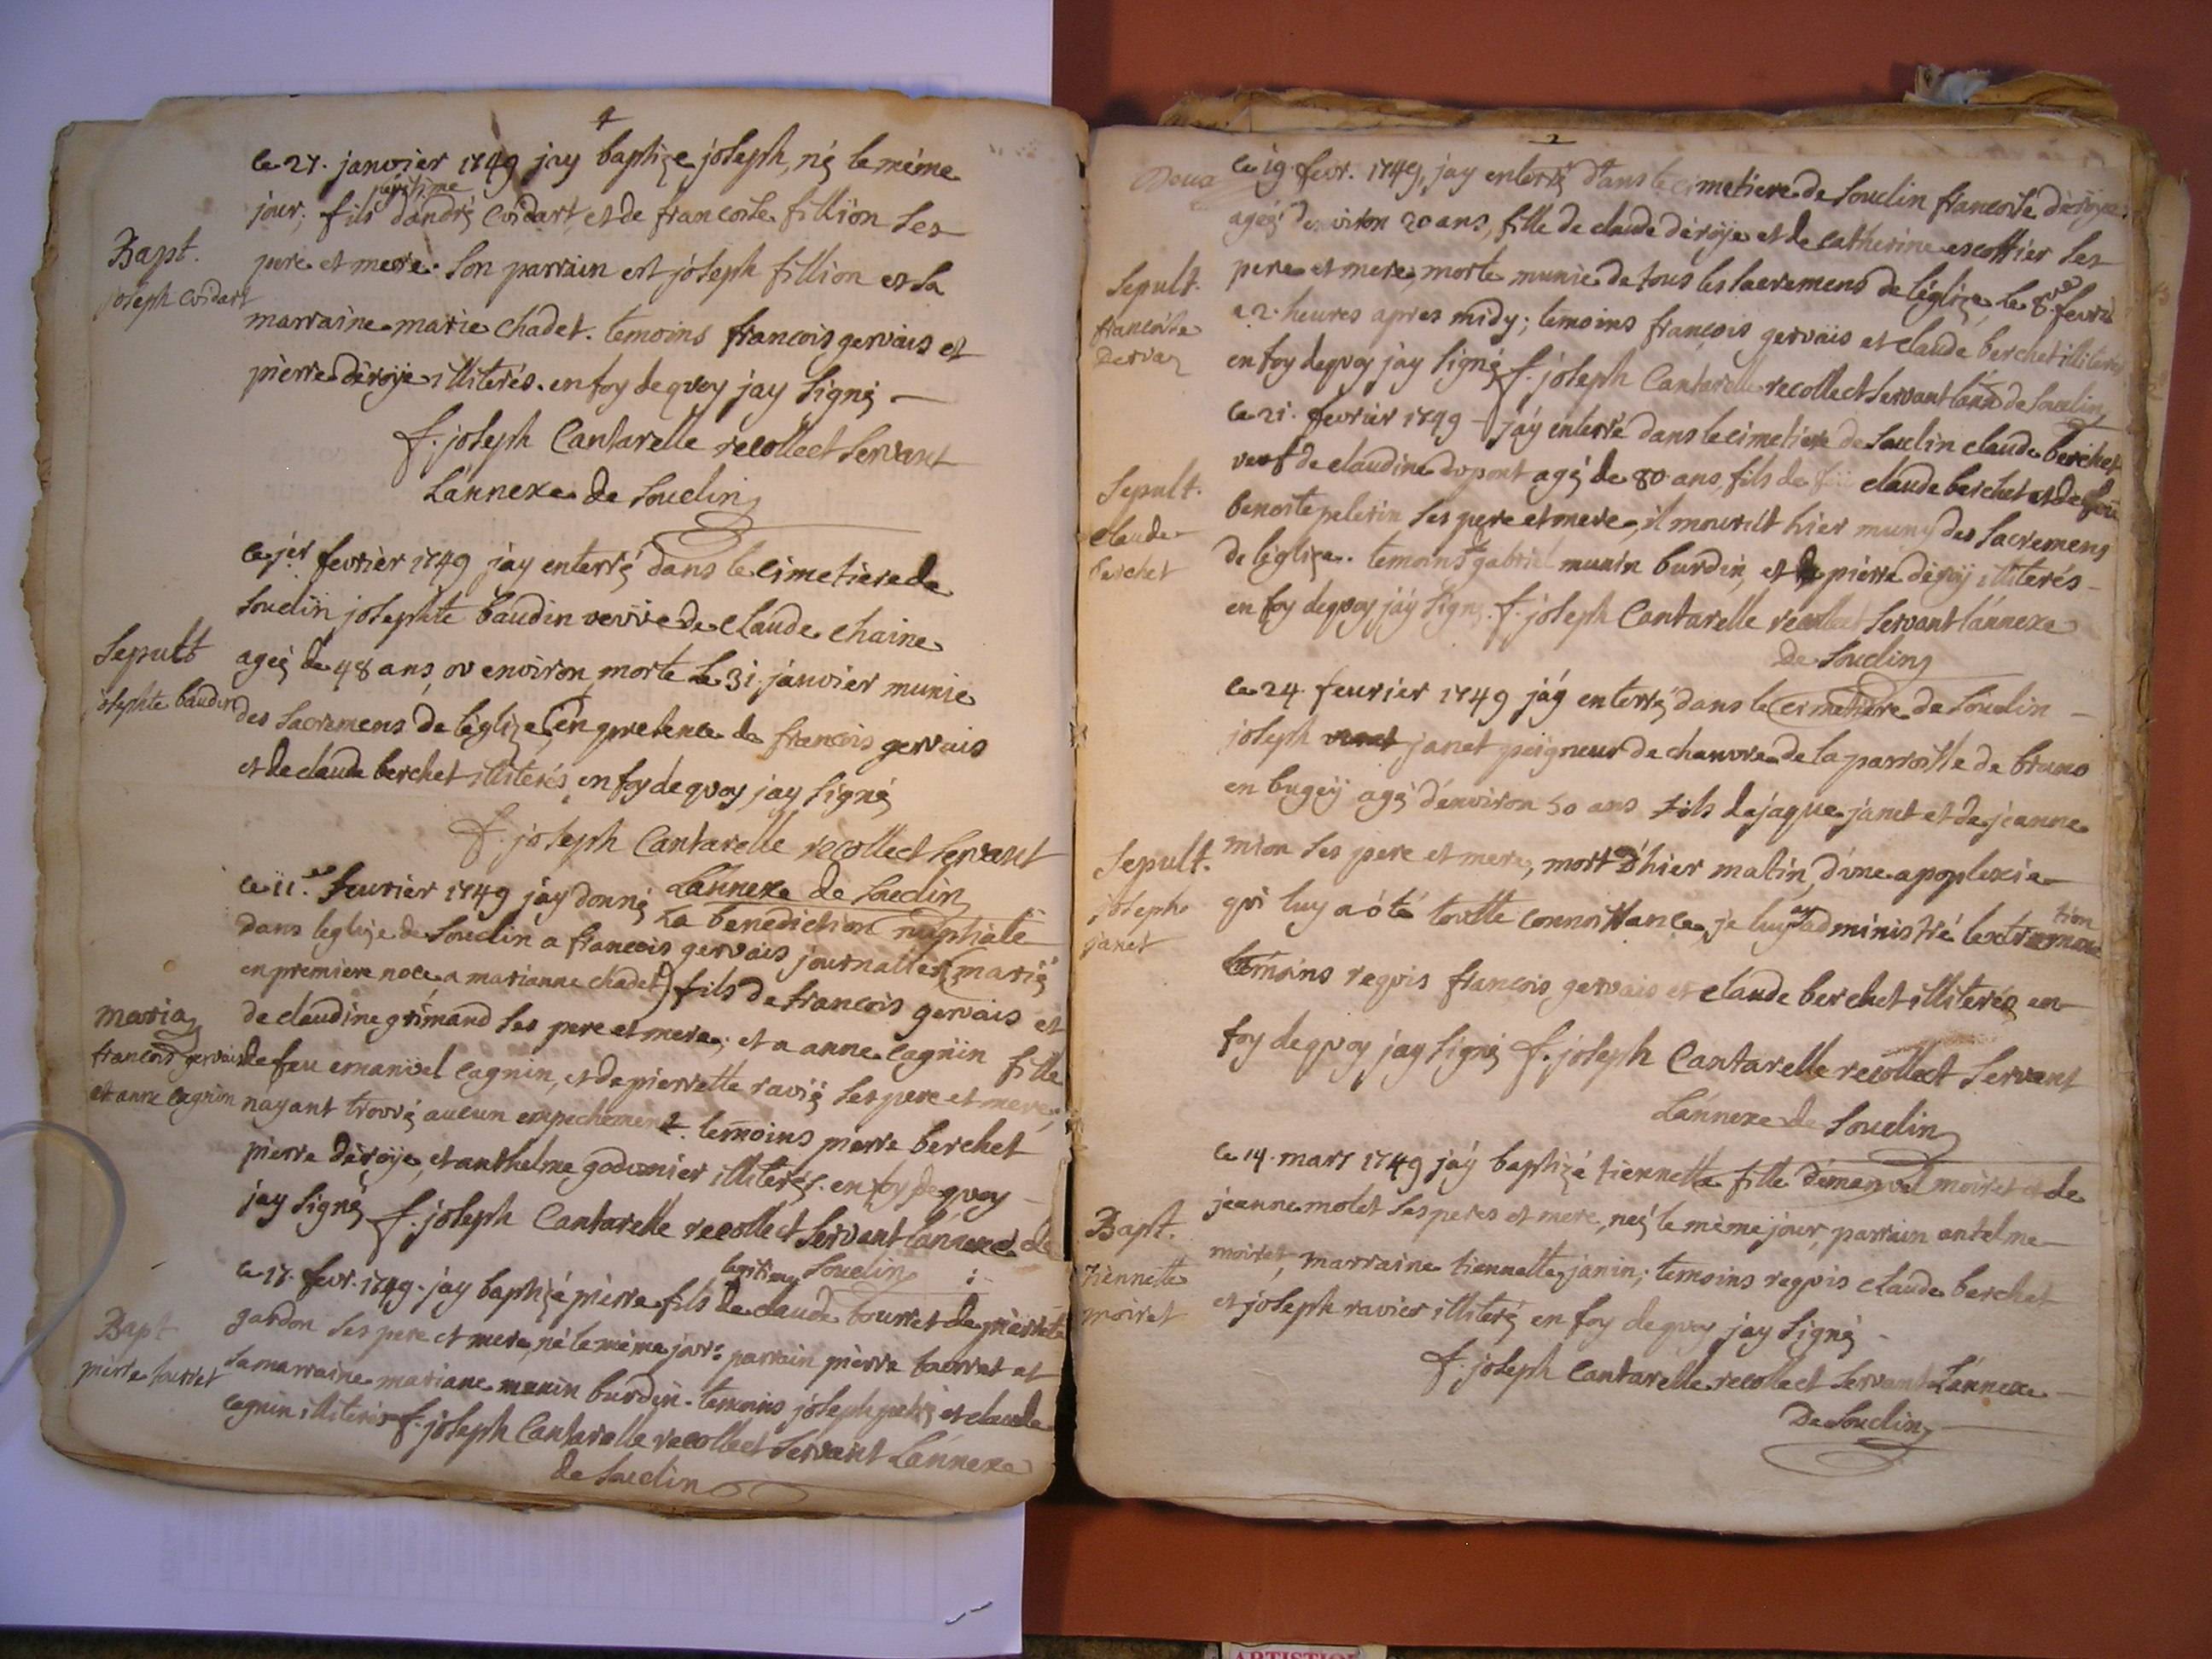 le 27. janvier 1749 jay baptize joseph, né le même
légitime
jour, fils dandré Coidart et de francoise fillion ses
Bapt.
joseph coidart
pere et mere. Son parrain est joseph fillion et sa
marraine marie chadet. temoins francois gervais et
pierre deroÿe illiterés. en foy de quoy jay signé
f. joseph Cantarelle recollect servant
Lánnexe de Souclin
le jer fevrier 1749 jay enterré dans le cimetiere de
Souclin josephte baudin veuve de claude chaine
Sepult
josephte baudin
ageé de 48 ans, ou environ morte le 31. janvier munie
des sacremens de léglize, en presence de francois gervais
et de claude berchet illiterés, en foy de quoy jay signé
f. joseph Cantarelle recollect servant
Lánnexe de Souclin
le 11.e feurier 1749 jáy donné La benediction nuptiale
dans leglize de Souclin a francois gervais journallier (marié
en premiere noce a marianne chadet) fils de francois gervais et
maria
francois gervais
et anne cagnin
de claudine grimand ses pere et mere; et a anne cagnin fille
de feu emanuel cagnin, et de pierrette ravié ses pere et mere,
nayant trouvé aucun empechement. temoins pierre berchet
pierre deroÿe, et anthelme godonier illiterés. en foy de quoy
jay signé f. joseph Cantarelle recollect servant lánnexe de
Souclin
legitime
le 17. fevr. 1749. jay baptizé pierre fils de claude bourret de pierrete
Bapt
pierre bourret
gardon ses pere et mere, né le même jour: parrain pierre bourret et
sa marraine mariane munin burdin. temoins joseph et claude
cagnin illiterés f. joseph Cantarelle recollect servant Lánnexe
de Souclin
2
le 19. fevr. 1749, jay enterré dans le cimetiere de Souclin francoise deroÿe
ageé denviron 20 ans, fille de claude deroÿe et de catherine escoffier ses
Sepult.
francoise
pere et mere, morte munie de tous les sacremens de léglize, le 8.me fevrie
a 2. heures apres midy; temoins francois gervais et claude berchet illiteres
en foy de quoy jay signé f. joseph Cantarelle recollect servant lánn de Souclin
le 21. fevrier 1749 jáy enterré dans le cimetiere de Souclin claude berchet
Sepult.
claude
berchet
veuf de claudine dupont agé de 80 ans, fils de claude berchet et de feu
benoite pelerin ses pere et mere, il mourút hier muny des sacremens
de léglize. temoins gabriel munin burdin, et de pierre deroÿ illiterés
en foy de quoy jáy signé. f. joseph Cantarelle recollect servant lánnexe
de Souclin
le 24. feurier 1749 jáy enterré dans le cimetiere de Souclin
joseph janet peigneur de chanvre de la parroisse de
en bugeÿ agé d'environ 50 ans fils de jaque janet et de jeanne
Sepult.
joseph
janet
mion ses pere et mere, mort d'hier matin, d'une apoplexie
qui luy a óté toutte connoissance, je luy ay administré lextremonction
temoins requis francois gervais et claude berchet illiterés en
foy de quoy jay signé f. joseph Cantarelle recollect servant
Lánnexe de Souclin
le 14. mars 1749 jáy baptizé tiennette fille démanuel moiret et de
Bapt.
tiennette
moiret
jeanne molet ses peres et mere, neé le même jour, parrain antelme
moiret, marraine tiennette janin; temoins requis claude berchet
et joseph ravier illiteré en foy de quoy jay signé
f. joseph Cantarelle recollect servant Lánnexe
De Souclin